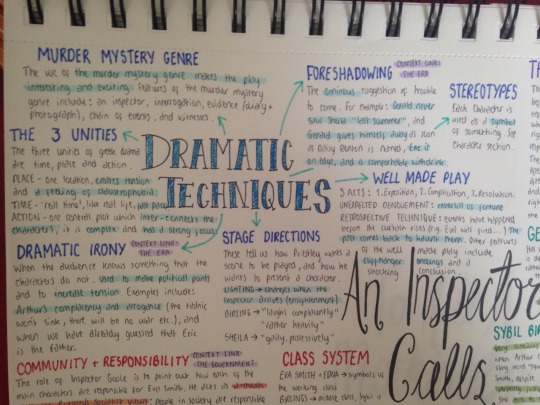 MURDER MYSTERY GENRE
The use of the murder mystery genre makes the play
interesting and exciting. Features of the murder mystery
genre include: an inspector, interrogation, evidence (diary +
photograph), chain of events, and witnesses.
FORESHADOWING
CONTEXT LINK:
THE ERA
The ominous suggestion of trouble
to come. For example: Gerald never
saw Sheila "last summer", and
Gerald gives himself away as soon
as Daisy Renton is named, Eric is
on edge, and is comfortably
STEREOTYPES
Each character is
used as a symbol
of something. See
character section.
THE 3 UNITIES
The three unities of greek drama
are time, place and action.
PLACE - one location, creates tension
and a feeling of claustrophobia
TIME - 'real time', like real life,
ACTION - one central plot which inter-connects the
characters, it is complex and has a strong focus
DRAMATIC
TECHNIQUES
WELL MADE PLAY
3 ACTS: 1. Exposition, 2. Complication, 3. Resolution.
UNEXPECTED DENOUEMENT: reversal of fortune
RETROSPECTIVE TECHNIQUE: events have happened
before the curtain rises (e.g. Eva Smith died...) The
past comes back to haunt them. Other features
of the well made play include
cliffhanger endings and a
shocking conclusion.
DRAMATIC IRONY
CONTEXT LINK:
THE ERA
When the audience knows something that the
characters do not. Used to make political point
and to increase tension. Examples include:
Arthur's complacency and arrogance (the titanic
won't sink, that will be no war etc.), and
when we have already guessed that Eric
is the father.
STAGE DIRECTIONS
These tell us how Priestley wanted a
scene to be played, and how he
wants to present a character.
LIGHTING → changes when the
Inspector arrives (enlightenment)
BIRLING → "laughs complacently"
"rather heavily"
SHEILA → "gaily, possessively"
An Inspector
Calls
COMMUNITY + RESPONSIBILITY
CONTEXT LINK:
THE GOVERNMENT
The role of Inspector Goole is to point out how each of the
main characters are responsible for Eva Smith. He acts as a
people in society are responsible
CLASS SYSTEM
EVA SMITH + EDNA → symbols of
the working class
BIRLINGS → middle class, Sybil is
SYBIL BIR
Very conscious
when Arthur
Slang word "squ
Smith, despite